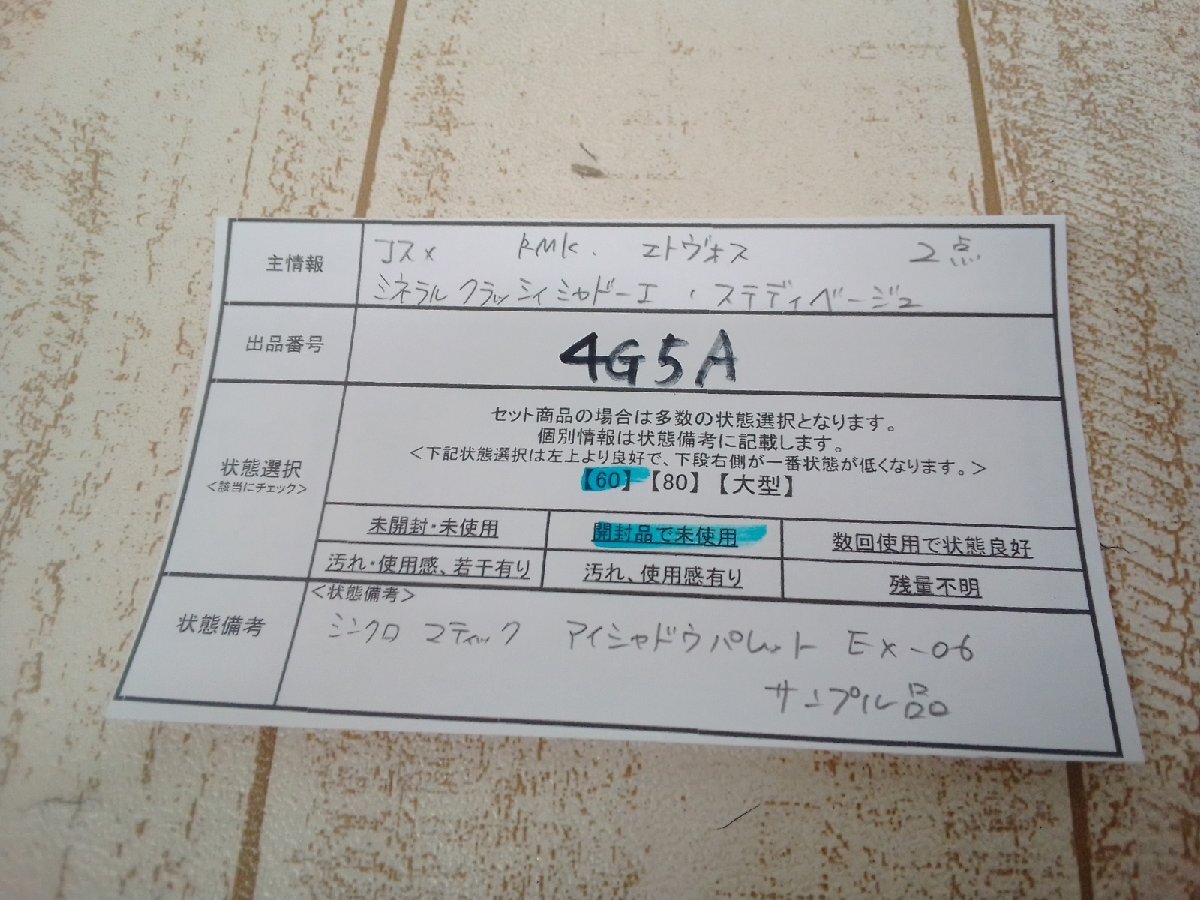 主情報
コスメ RMK. エトヴォス 2点
ミネラルクラッシィシャドーエ・ステディベージュ
出品番号
4G5A
状態選択
<該当にチェック>
セット商品の場合は多数の状態選択となります。
個別情報は状態備考に記載します。
<下記状態選択は左上より良好で、下段右側が一番状態が低くなります。>
【60】【80】【大型】
未開封・未使用 開封品で未使用 数回使用で状態良好
汚れ・使用感、若干有り 汚れ、使用感有り 残量不明
状態備考
<状態備考>
シンクロマティック アイシャドウパレット EX-06
サンプル品